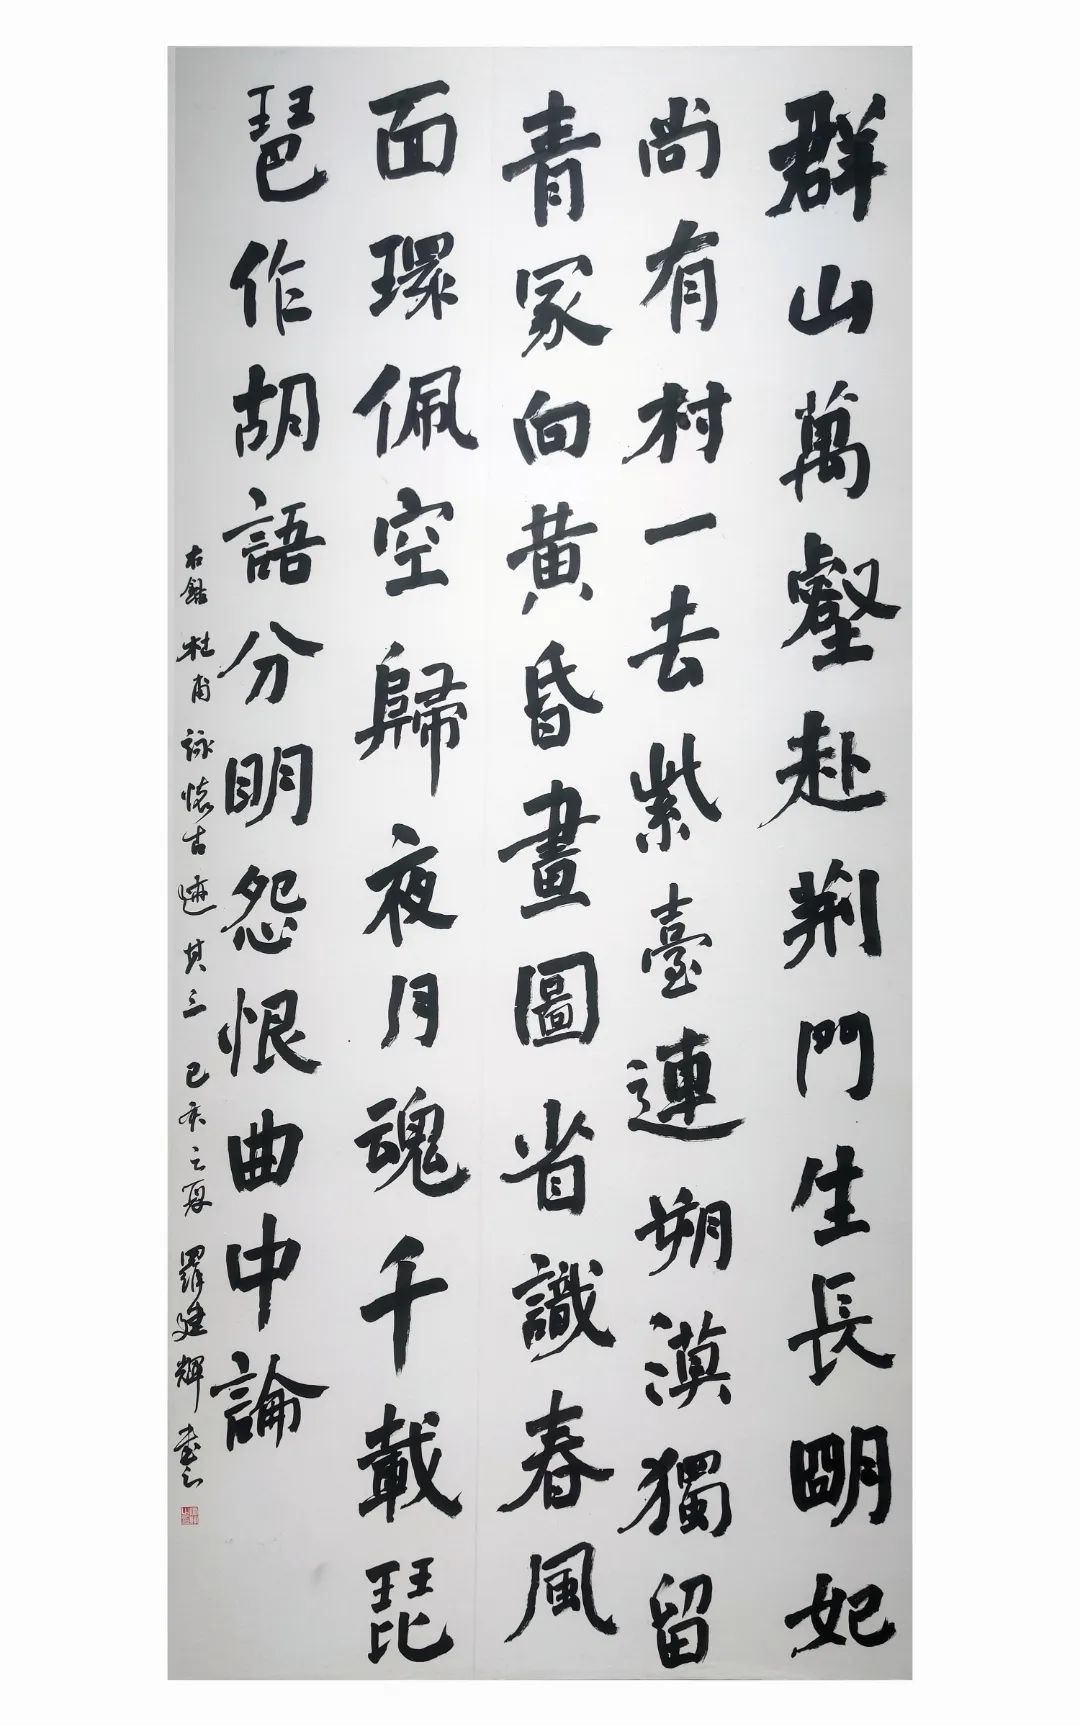 群山萬壑赴荆門生長明妃
尚有村一去紫臺連朔漠獨留
青冢向黃昏畫圖省識春風
面環佩空歸夜月魂千載琵
琶作胡語分明怨恨曲中論
右錄杜甫詠懷古迹其三己亥之夏羅建輝書